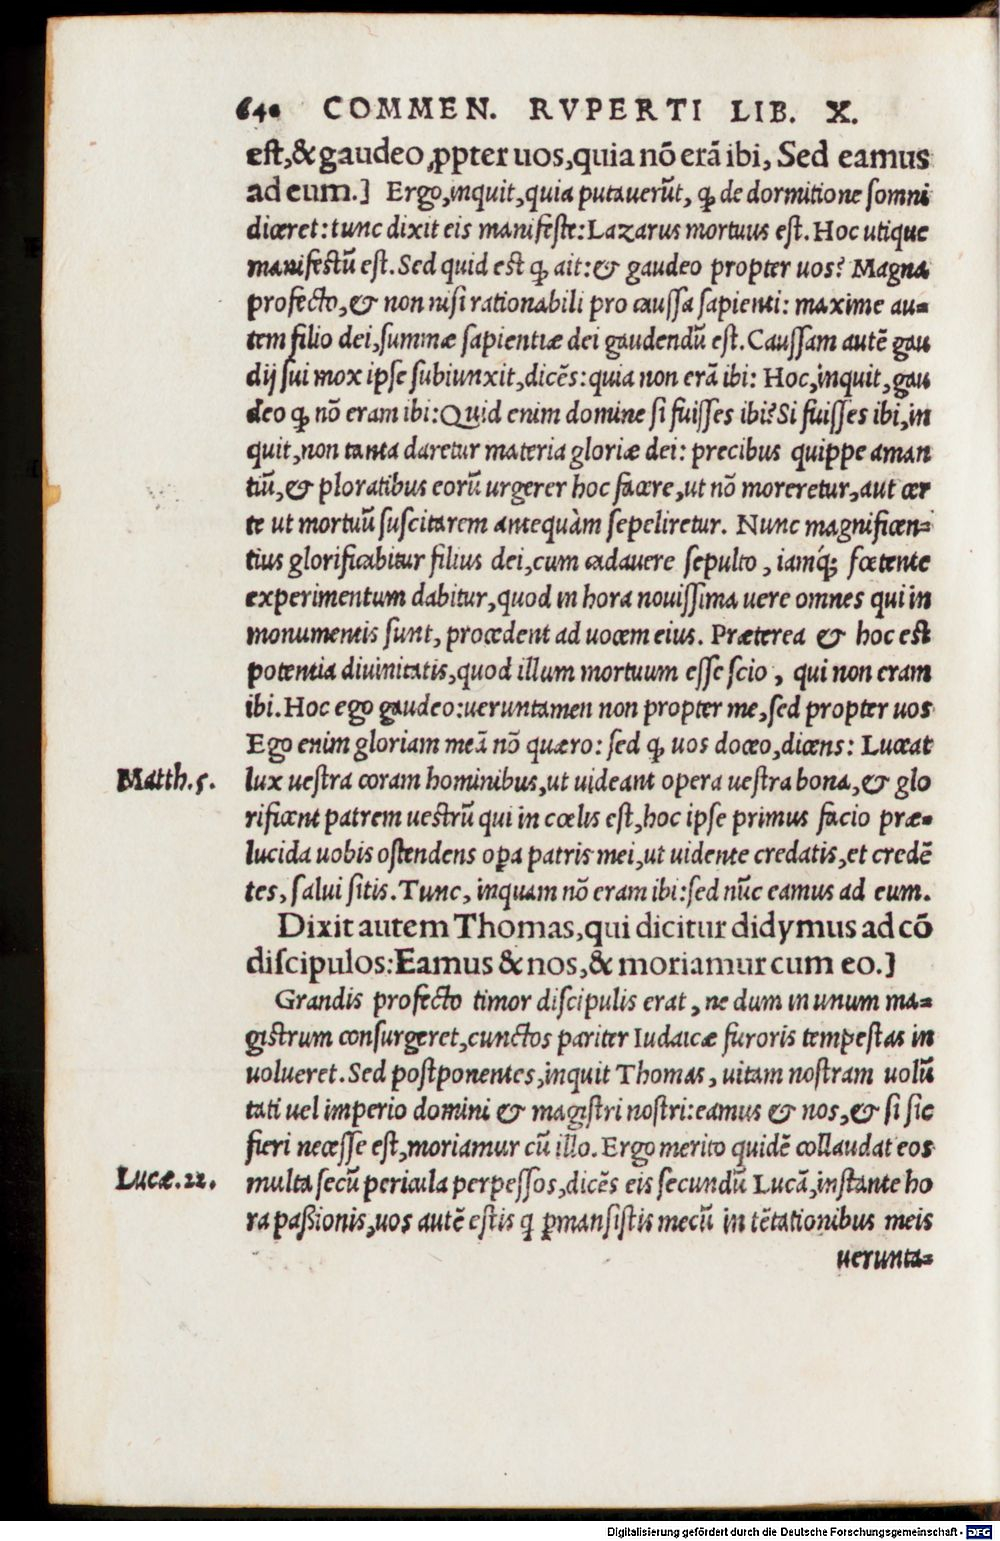 640 COMMEN. RVPERTI LIB. X.
est, & gaudeo ꝓpter uos, quia nō erā ibi, Sed eamus
ad eum.] Ergo, inquit, quia putauerūt, ꝙ de dormitione somni
diceret: tunc dixit eis manifeste: Lazarus mortuus est. Hoc utique
manifestū est. Sed quid est ꝙ ait: & gaudeo propter uos? Magna
profecto, & non nisi rationabili pro caussa sapienti: maxime au-
tem filio dei, summæ sapientiæ dei gaudendū est. Caussam autē gau
dij sui mox ipse subiunxit, dicēs: quia non erā ibi: Hoc, inquit, gau
deo ꝙ nō eram ibi: Quid enim domine si fuisses ibi? Si fuisses ibi, in
quit, non tanta daretur materia gloriæ dei: precibus quippe aman
tiū, & ploratibus eorū urgerer hoc facere, ut nō moreretur, aut cer
te ut mortuū suscitarem antequàm sepeliretur. Nunc magnificen-
tius glorificabitur filius dei, cum cadauere sepulto, iamq́; fœtente
experimentum dabitur, quod in hora nouissima uere omnes qui in
monumentis sunt, procedent ad uocem eius. Præterea & hoc est
potentia diuinitatis, quod illum mortuum esse scio, qui non eram
ibi. Hoc ego gaudeo: ueruntamen non propter me, sed propter uos
Ego enim gloriam meā nō quæro: sed ꝙ uos doceo, dicens: Luceat
Matth. 5. lux uestra coram hominibus, ut uideant opera uestra bona, & glo
rificent patrem uestrū qui in cœlis est, hoc ipse primus facio præ-
lucida uobis ostendens oꝑa patris mei, ut uidente credatis, et credē
tes, salui sitis. Tunc, inquam nō eram ibi: sed nūc eamus ad eum.
Dixit autem Thomas, qui dicitur didymus ad cō
discipulos: Eamus & nos, & moriamur cum eo.]
Grandis profecto timor discipulis erat, ne dum in unum ma-
gistrum consurgeret, cunctos pariter Iudaicæ furoris tempestas in
uolueret. Sed postponentes, inquit Thomas, uitam nostram uolū
tati uel imperio domini & magistri nostri: eamus & nos, & si sic
fieri necesse est, moriamur cū illo. Ergo merito quidē collaudat eos
Lucæ. 22. multa secū pericula perpessos, dicēs eis secundū Lucā, instante ho
ra paßionis, uos autē estis q ꝑmansistis mecū in tētationibus meis
uerunta-
Digitalisierung gefördert durch die Deutsche Forschungsgemeinschaft - DFG